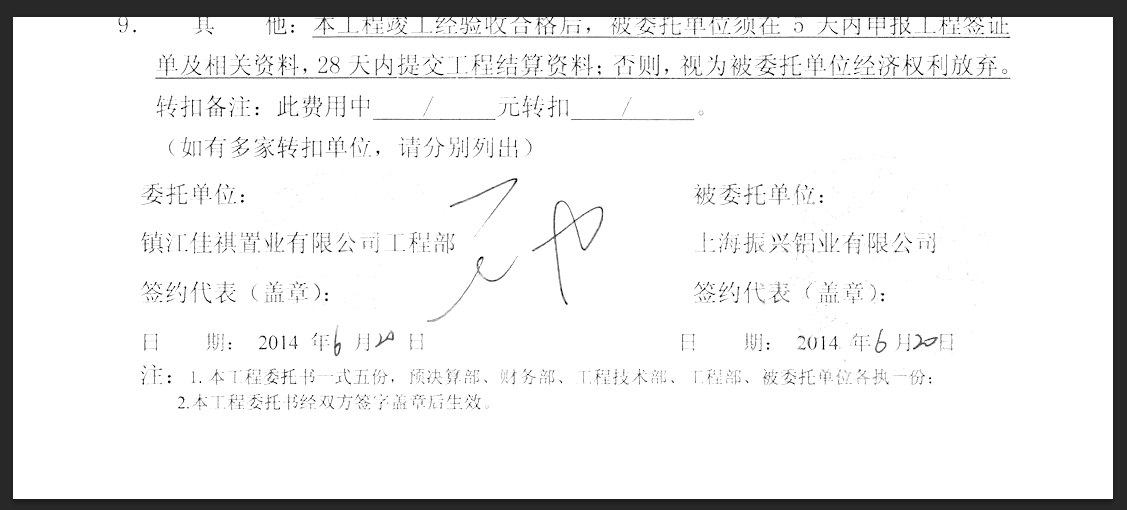 9. 其 他：本工程竣工经验收合格后，被委托单位须在 5 天内申报工程签证
单及相关资料，28 天内提交工程结算资料；否则，视为被委托单位经济权利放弃。
转扣备注：此费用中____/_____元转扣____/_____。
（如有多家转扣单位，请分别列出）
委托单位： 被委托单位：
镇江佳祺置业有限公司工程部 上海振兴铝业有限公司
签约代表（盖章）： 签约代表（盖章）：
日 期： 2014 年6月20日 日 期： 2014 年6月20日
注：1.本工程委托书一式五份，预决算部、财务部、工程技术部、工程部、被委托单位各执一份；
2.本工程委托书经双方签字盖章后生效。